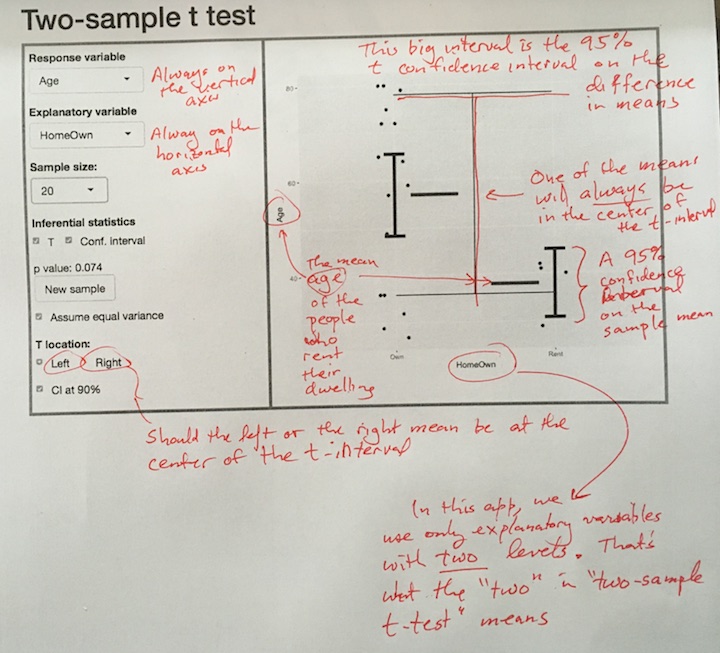 Two-sample t test
Response variable
Age
Always on
the vertical
axis
Explanatory variable
HomeOwn
Alway on the
horizontal
axis
Sample size:
20
Inferential statistics
T Conf. interval
p value: 0.074
New sample
Assume equal variance
T location:
Left Right
CI at 90%
This big interval is the 95%
t confidence interval on the
difference
in means
80-
60-
40-
Age
One of the means
will always be
in the center of
the t-interval
The mean
age
of the
people
who
rent
their
dwelling
A 95%
confidence
interval
on the
sample mean
Own
Rent
HomeOwn
Should the left or the right mean be at the
center of the t-interval
In this app, we
use only explanatory variables
with two levels. That's
what the "two" in "two-sample
t-test" means